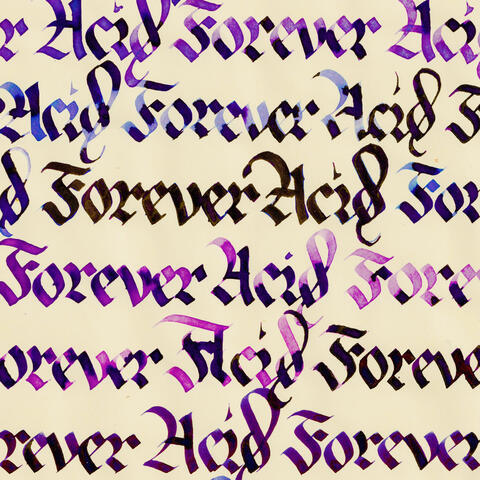 r Acid Forever Acid
Acid Forever Acid F
d Forever Acid For
Forever Acid Fore
orever Acid Forever
rever Acid Forever